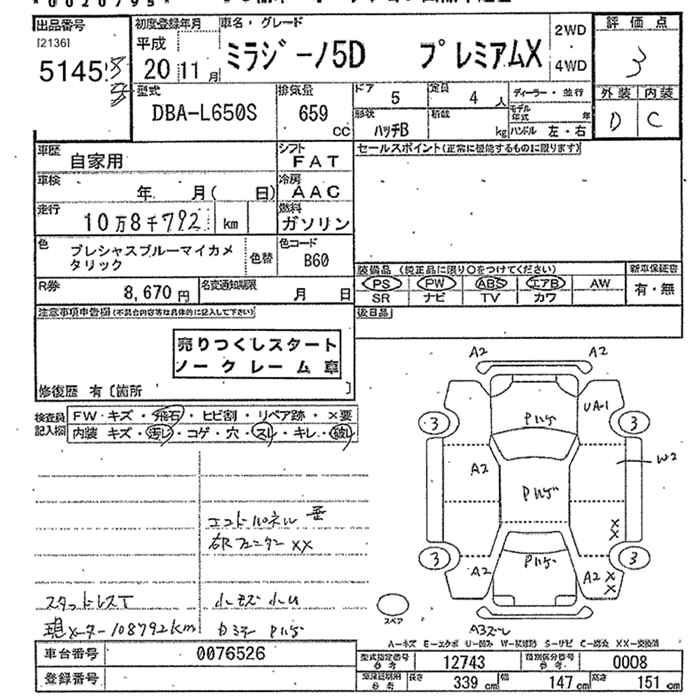 出品番号
[2136]
5145
初度登録年月
平成
20 11月
車名・グレード
ミラジーノ5D プレミアムX
2WD
・
4WD
評価点
3
外装 内装
D C
型式
DBA-L650S
排気量
659
CC
ドア
5
定員
4人
形状
ハッチB
積載
kg
ディーラー・並行
モデル年式 年
ハンドル 左・右
車歴
自家用
シフト
FAT
車検
年 月( 日)
冷房
AAC
走行
10万8千792 km
燃料
ガソリン
色
プレシャスブルーマイカメタリック
色替
色コード
B60
R券
8,670円
名変通知期限
月 日
セールスポイント(正常に機能するものに限ります)
装備品 (純正品に限り○をつけてください)
PS PW ABS エアB AW
SR ナビ TV カワ
新車保証書
有・無
後日品
注意事項申告欄(不具合内容等は具体的に記入して下さい)
売りつくしスタート
ノークレーム 章
修復歴 有〔箇所 〕
検査員記入欄
FW・キズ・飛石・ヒビ割・リペア跡・×要
内装 キズ・汚レ・コゲ・穴・スレ・キレ・破レ
エンドパネル 歪
右Rフェンダー XX
スタッドレスT
小キズ 小凹
現メーター108792km
A2 A2
UA1
3 3
A2
W2
X
X
3 3
A2 A2 X
X
スペア
A-キズ E-エクボ U-凹み W-板補跡 S-サビ C-腐食 XX-交換済
車台番号
0076526
登録番号
型式指定番号
参考
12743
類別区分番号
参考
0008
参考
長さ
339cm
幅
147cm
高さ
151cm